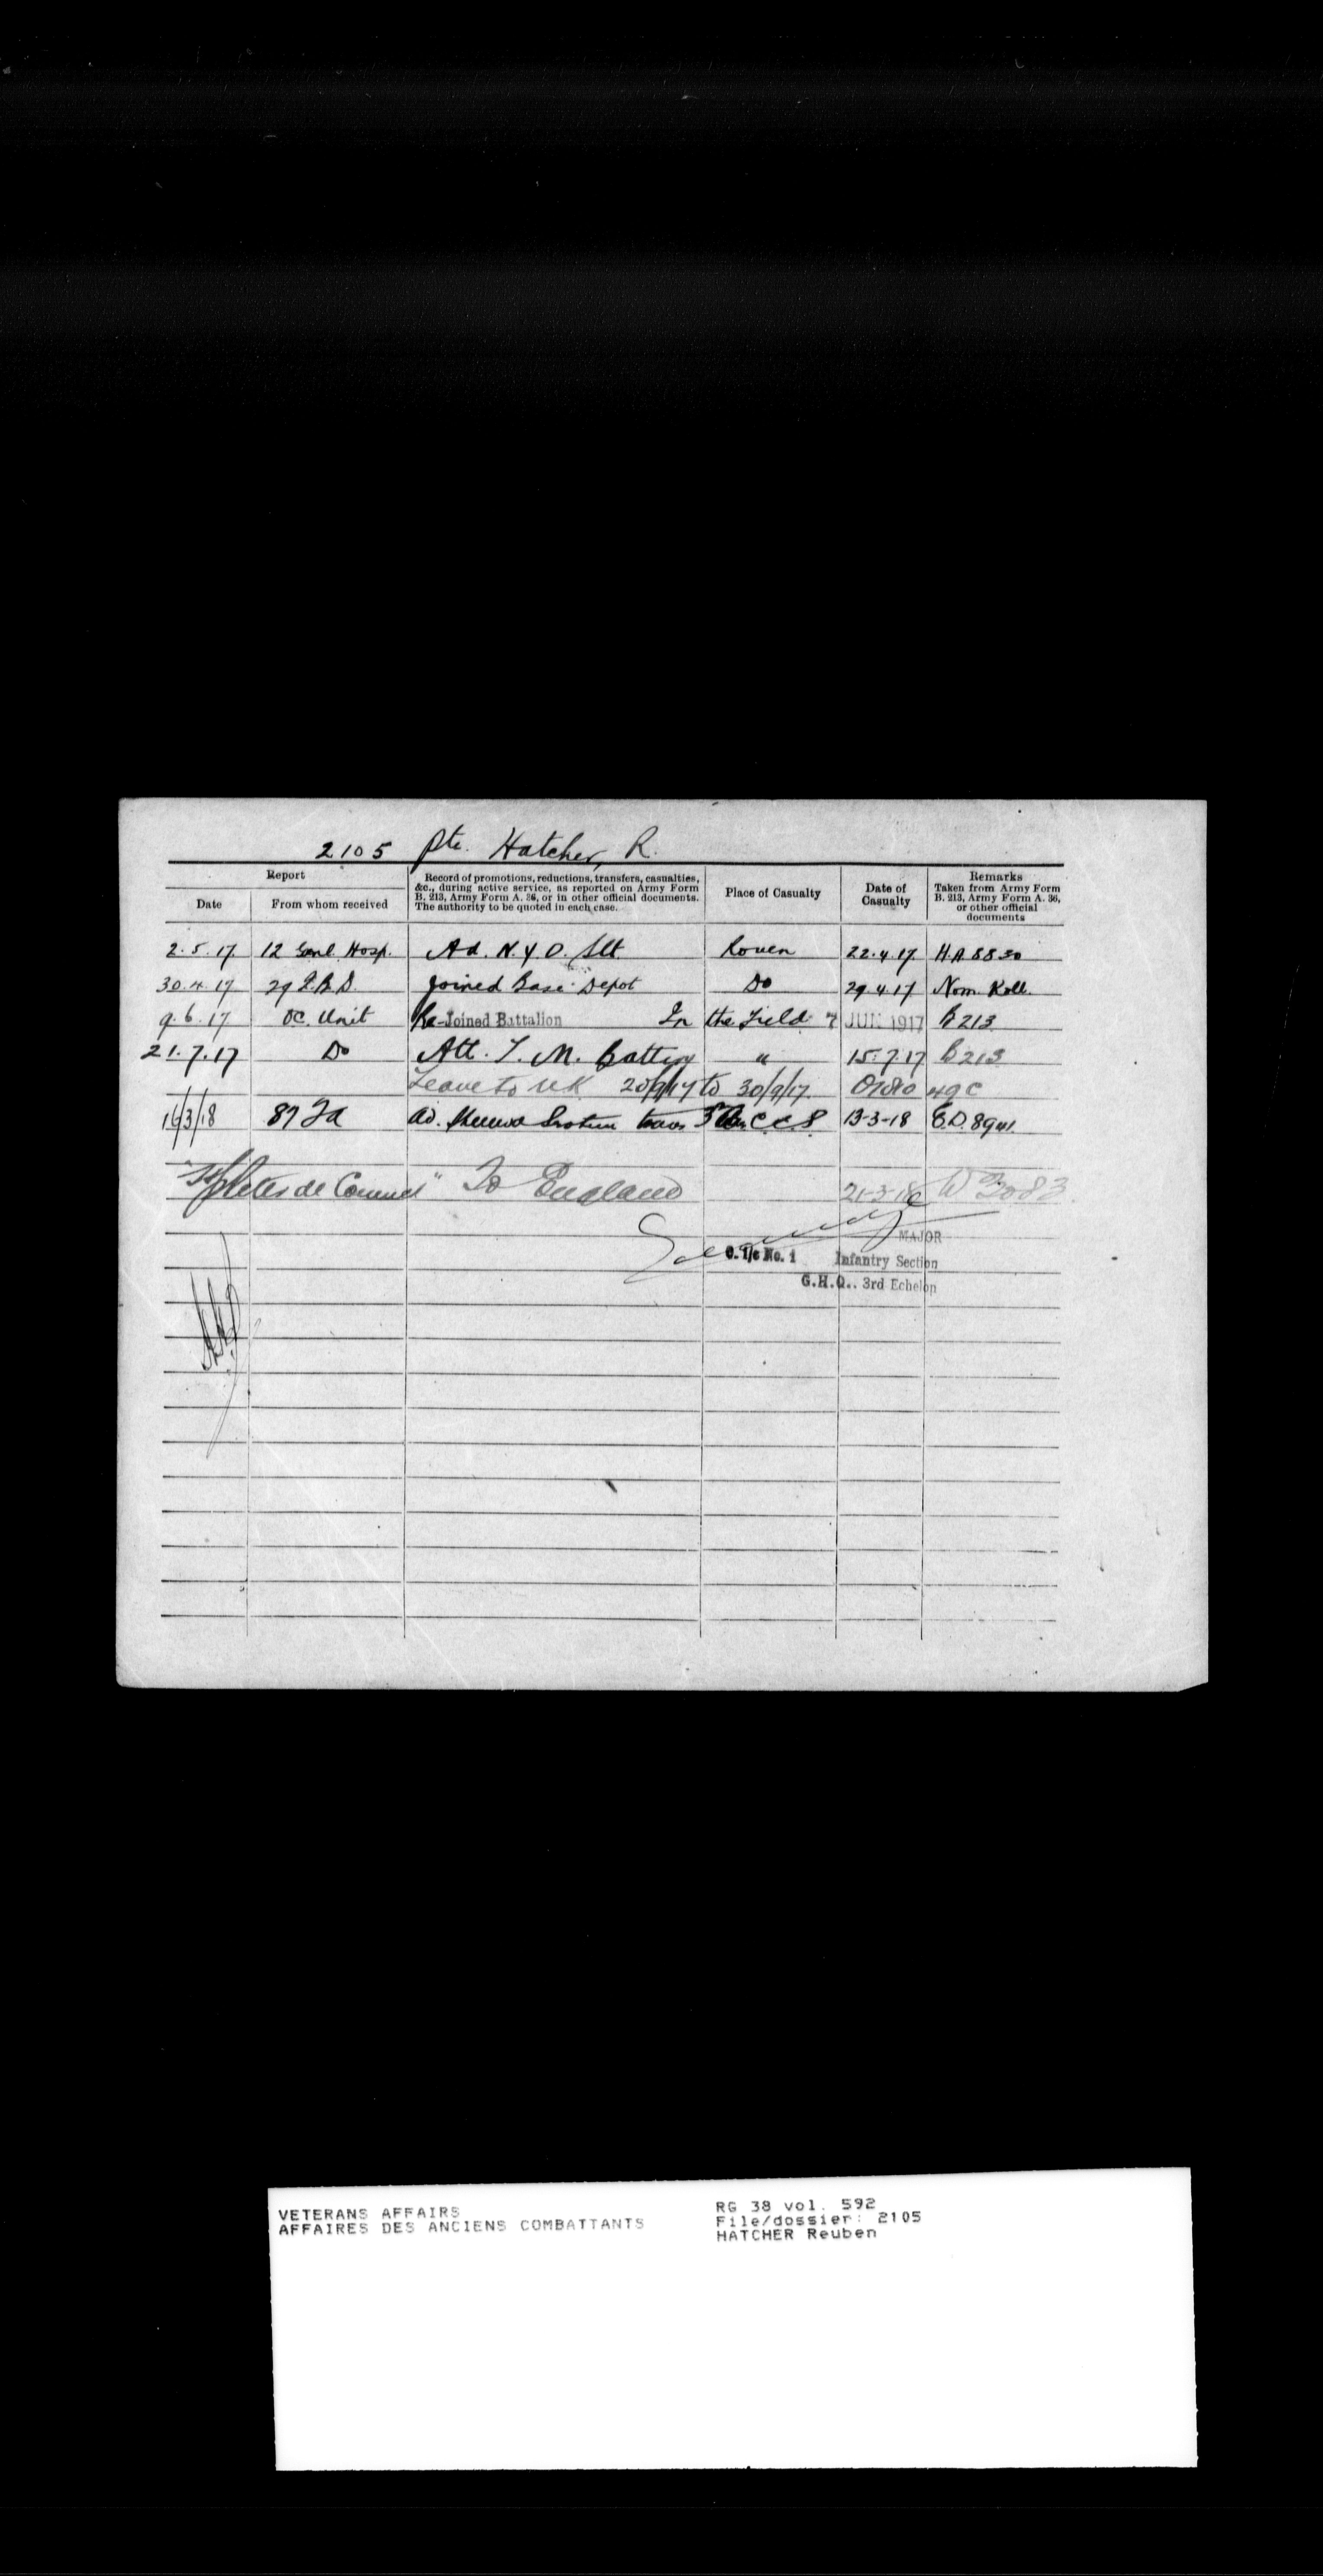 2105 Pte. Hatcher, R.
Report
Date
From whom received
Record of promotions, reductions, transfers, casualties,
&c., during active service, as reported on Army Form
B. 213, Army Form A. 36, or in other official documents.
The authority to be quoted in each case.
Place of Casualty
Date of
Casualty
Remarks
Taken from Army Form
B. 213, Army Form A. 36,
or other official
documents
2.5.17. 12 Genl. Hosp. Ad. N.Y.D. Slt Rouen 22.4.17 H.A 8850
30.4.17 29 I.B.D. Joined Base Depot Do 29.4.17 Nom. Roll.
9.6.17 OC. Unit Re-Joined Battalion In the Field 7 JUN 1917 B 213
21.7.17 Do Att. T. M. Battery " 15.7.17 B 213
Leave to UK 20/9/17 to 30/9/17. 49C
16/3/18 87 Fa ad. trans C.C.S. 13-3-18 C.D. 8941.
de To England 21-3-18 W 3083
MAJOR
O. i/c No. 1 Infantry Section
G.H.Q.. 3rd Echelon
VETERANS AFFAIRS
AFFAIRES DES ANCIENS COMBATTANTS
RG 38 vol. 592
File/dossier: 2105
HATCHER Reuben